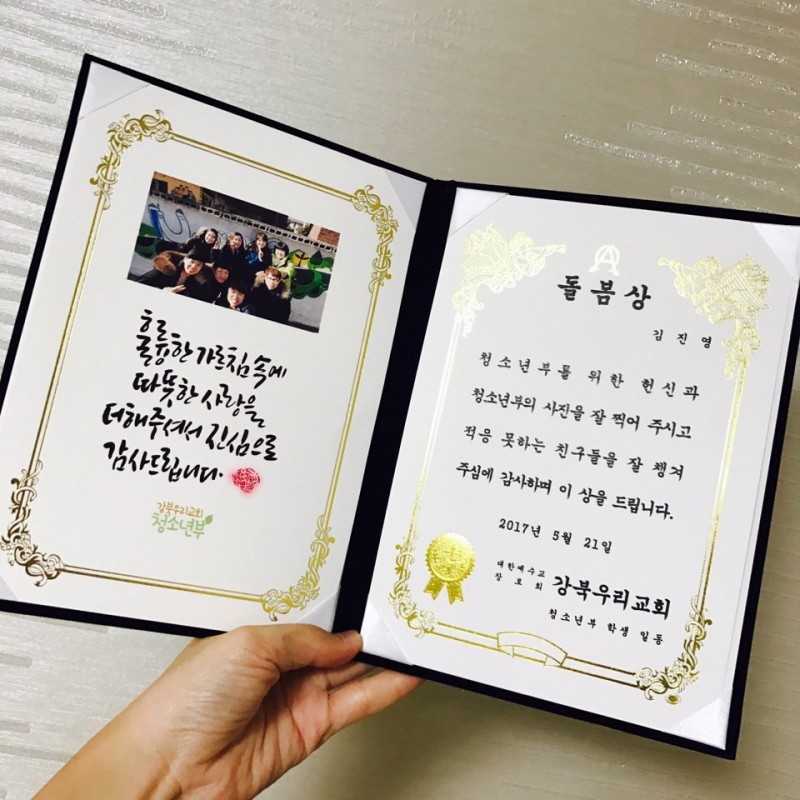 훌륭한 가르침 속에
따뜻한 사랑을
더해주셔서 진심으로
감사드립니다.
강북우리교회
청소년부
돌봄상
김진영
청소년부를 위한 헌신과
청소년부의 사진을 잘 찍어 주시고
적응 못하는 친구들을 잘 챙겨
주심에 감사하며 이 상을 드립니다.
2017년 5월 21일
대한예수교
장로회
강북우리교회
청소년부 학생 일동